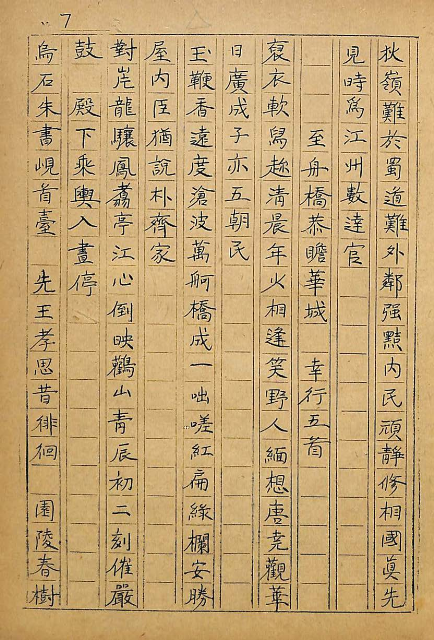 7
狄嶺難於蜀道難外鄰强黠內民頑靜修相國眞先
見時爲江州數達官
至舟橋恭瞻華城　幸行五首
袞衣軟舄趂淸晨年火相逢笑野人緬想唐堯觀華
日廣成子亦五朝民
玉鞭香遠度滄波萬舸橋成一咄嗟紅扁綠欄安勝
屋內臣猶說朴齊家
對岸龍驤鳳翥亭江心倒映鸛山靑辰初二刻催嚴
鼓　殿下乘輿入畫停
烏石朱書峴首臺　先王孝思昔徘徊　園陵春樹